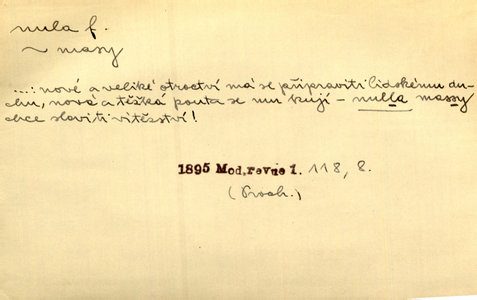 nula f.
~ masy
...: nové a veliké otroctví má se připraviti lidskému du-
chu, nová a těžká pouta se mu kují – nulla massy
chce slaviti vítězství!
1895 Mod. revue 1. 118, 8.
(Proch.)